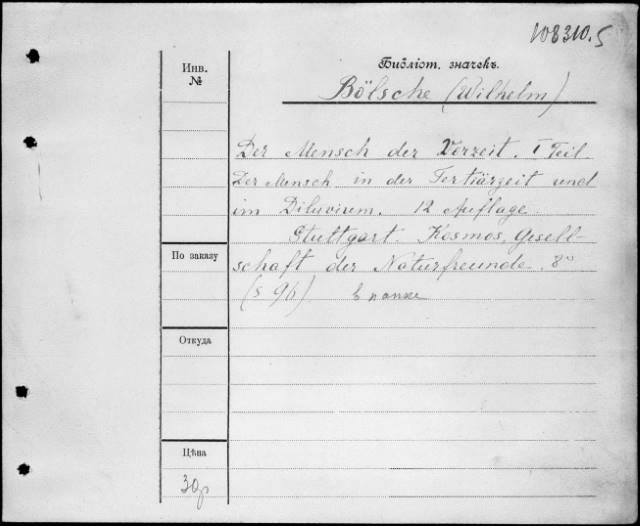 108310.5
Библіот. значекъ.
Инв.
№
Bölsche (Wilhelm)
Der Mensch der Vorzeit. I Teil.
Der Mensch in der Tertiärzeit und
im Diluvium. 12 Auflage.
Stuttgart. Kosmos, Gesell-
schaft der Naturfreunde. 8°
По заказу
(S 96) в папке
Откуда
Цѣна
30